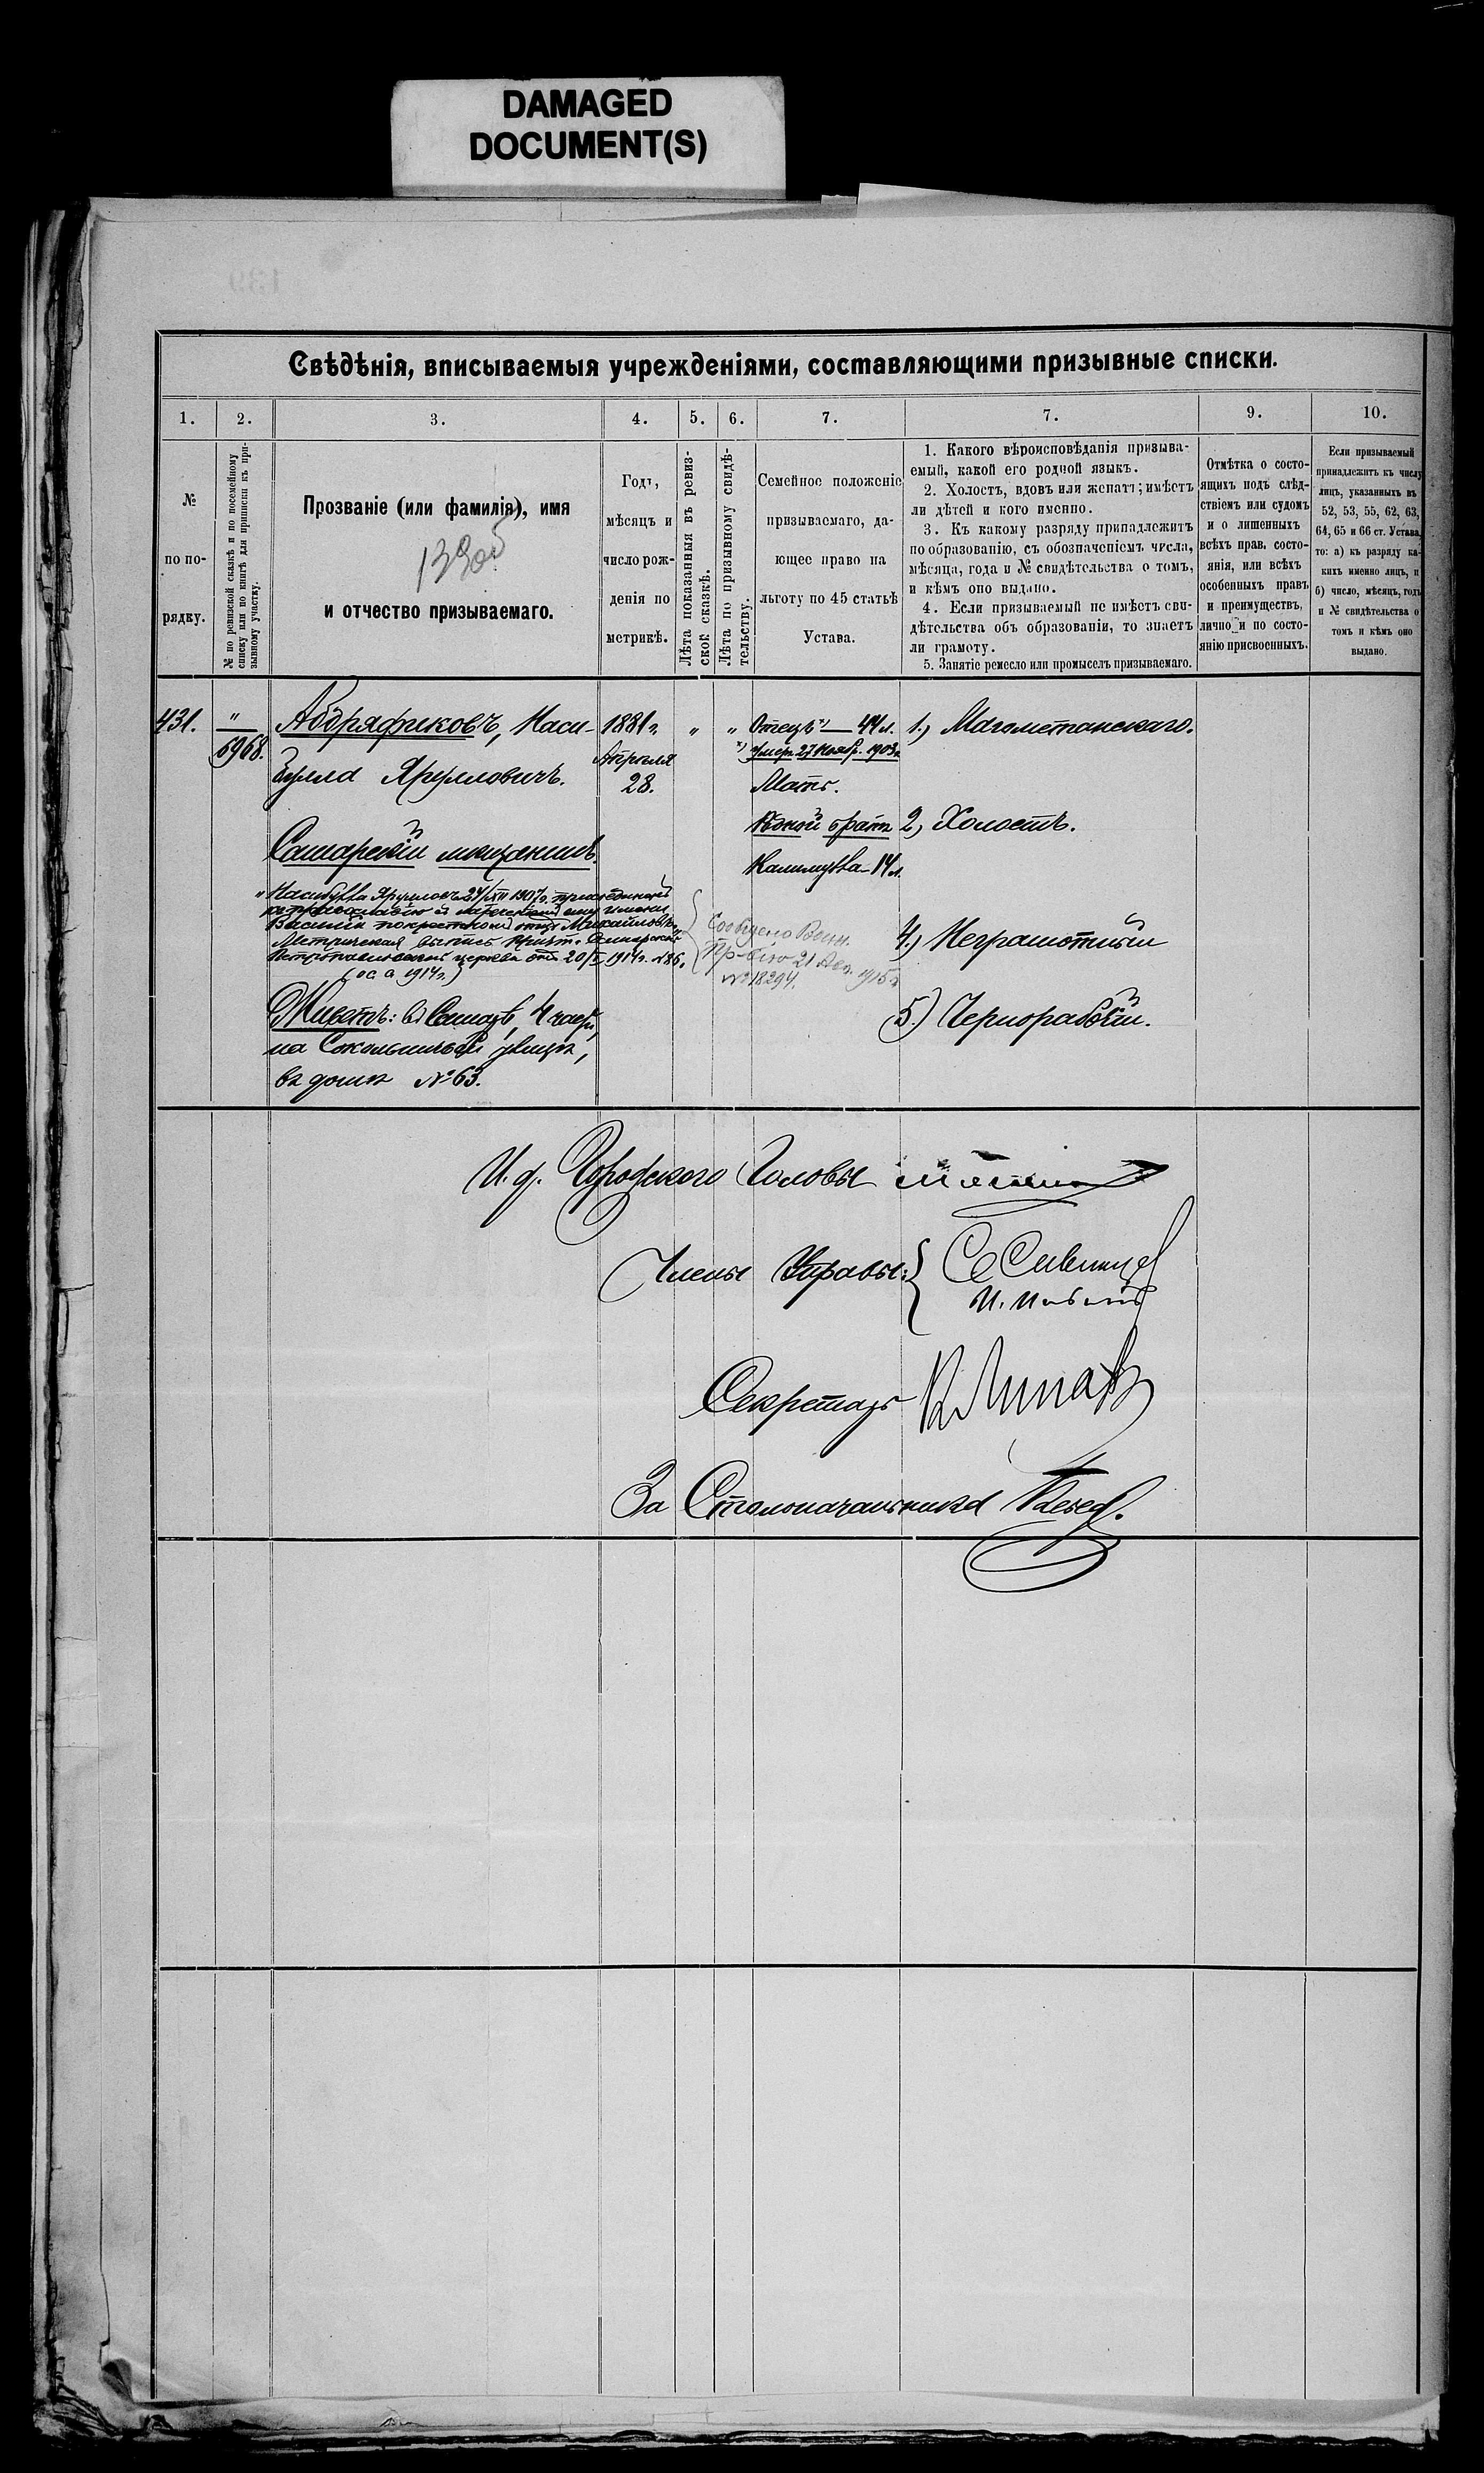 DAMAGED
DOCUMENT(S)
Свѣдѣнія, вписываемыя учрежденіями, составляющими призывные списки.
1. 2. 3. 4. 5. 6. 7. 7. 9. 10.
№
по по-
рядку.
№ по ревизской сказкѣ и по посемейному
списку или по книгѣ для приписки къ при-
зывному участку.
Прозваніе (или фамилія), имя
и отчество призываемаго.
Годъ,
мѣсяцъ и
число рож-
денія по
метрикѣ.
Лѣта показанныя въ ревиз-
ской сказкѣ.
Лѣта по призывному свидѣ-
тельству.
Семейное положеніе
призываемаго, да-
ющее право на
льготу по 45 статьѣ
Устава.
1. Какого вѣроисповѣданія призыва-
емый, какой его родной языкъ.
2. Холостъ, вдовъ или женатъ; имѣетъ
ли дѣтей и кого именно.
3. Къ какому разряду принадлежитъ
по образованію, съ обозначеніемъ числа,
мѣсяца, года и № свидѣтельства о томъ,
и кѣмъ оно выдано.
4. Если призываемый не имѣетъ сви-
дѣтельства объ образованіи, то знаетъ
ли грамоту.
5. Занятіе ремесло или промыселъ призываемаго.
Отмѣтка о состо-
ящихъ подъ слѣд-
ствіемъ или судомъ
и о лишенныхъ
всѣхъ прав. состо-
янія, или всѣхъ
особенныхъ правъ
и преимуществъ,
лично и по состо-
янію присвоенныхъ.
Если призываемый
принадлежитъ къ числу
лицъ, указанныхъ въ
52, 53, 55, 62, 63,
64, 65 и 66 ст. Устава,
то: а) къ разряду ка-
кихъ именно лицъ, и
б) число, мѣсяцъ, годъ
и № свидѣтельства о
томъ и кѣмъ оно
выдано.
431.
"
6968.
Абдряфиковъ, Наси-
булла Яруллович.
Самарскій мѣщанинъ.
" Насибулла Яруллов. 24/XII 1907 г. присоединенъ
къ православію съ нареченіемъ ему имени
Василій по крестному отцу Михайловъ.
Метрическая выпись Самарской
Петропавловской церкви отъ 20/ 1914 г. №86.
(1914 г.)
Живетъ: въ Самарѣ, 4 части,
на Сокольничьей улицѣ,
въ домѣ №63.
1881 г.
Апрѣля
28.
"
"
Отецъ ×) — 44 л.
×) умеръ 27 Нояб. 1903 г.
Мать.
Родной братъ
Калимулла — 14 л.
Сообщено Воин.
Пр-вію 21 1915 г.
№18294.
1.) Магометанскаго.
2.) Холостъ.
4.) Неграмотный
5.) Чернорабочій.
И. д. Городского Головы
Члены Управы:
Секретарь
За Столоначальника